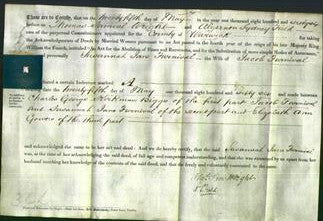 These are to Certify, that on the twenty fifth day of May in the year one thousand eight hundred and sixty six
before us Thomas Samuel Wright and Algernon Sydney Field
two of the perpetual Commissioners appointed for the County of Warwick for taking
the Acknowledgments of Deeds by Married Women pursuant to an Act passed in the fourth year of the reign of his late Majesty King
William the Fourth, intituled "An Act for the Abolition of Fines and Recoveries, and for the Substitution of more simple Modes of Assurance,"
appeared personally Susannah Furnival the Wife of Jacob Furnival
and produced a certain Indenture marked A
the twenty fifth day of May one thousand eight hundred and sixty six and made between
Charles George Beggs of the first part Jacob Furnival
and Susannah Furnival of the second part and Elizabeth Ann
Gower of the third part
and acknowledged the same to be her act and deed: And we do hereby certify, that the said Susannah Furnival
was, at the time of her acknowledging the said deed, of full age and competent understanding, and that she was examined by us apart from her
husband touching her knowledge of the contents of the said deed, and that she freely and voluntarily consented to the same.
Wright
Field